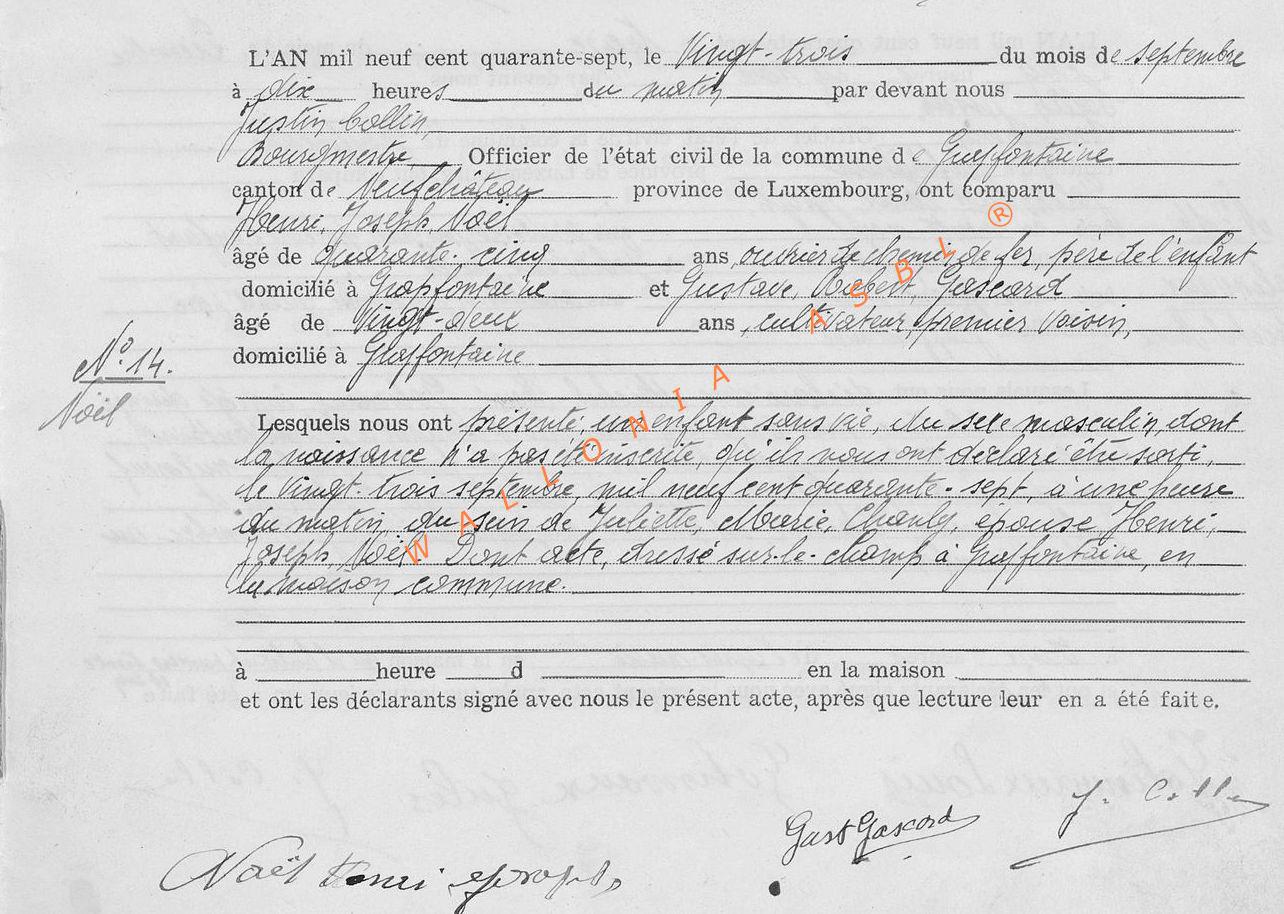 L'AN mil neuf cent quarante-sept, le Vingt-trois du mois de septembre
à dix heures du matin par devant nous
Justin Collin,
Bourgmestre Officier de l'état civil de la commune de Grapfontaine
canton de Neufchâteau province de Luxembourg, ont comparu
Henri, Joseph, Noël
âgé de quarante-cinq ans, ouvrier de chemin de fer, père de l'enfant
domicilié à Grapfontaine et Gustave, Robert, Gascard
âgé de Vingt-deux ans, cultivateur, premier voisin,
domicilié à Grapfontaine
N° 14.
Noël
Lesquels nous ont présenté, un enfant sans vie, du sexe masculin, dont
la naissance n'a pas été inscrite, qu'ils nous ont déclaré être sorti,
le vingt-trois septembre, mil neuf cent quarante-sept, à une heure
du matin, du sein de Juliette, Marie, épouse Henri,
Joseph, Noël. Dont acte, dressé sur-le-champ à Grapfontaine, en
la maison commune.
à heure d en la maison
et ont les déclarants signé avec nous le présent acte, après que lecture leur en a été faite.
Gust Gascard J. Collin
Noël Henri
WALLONIA ASBL ®